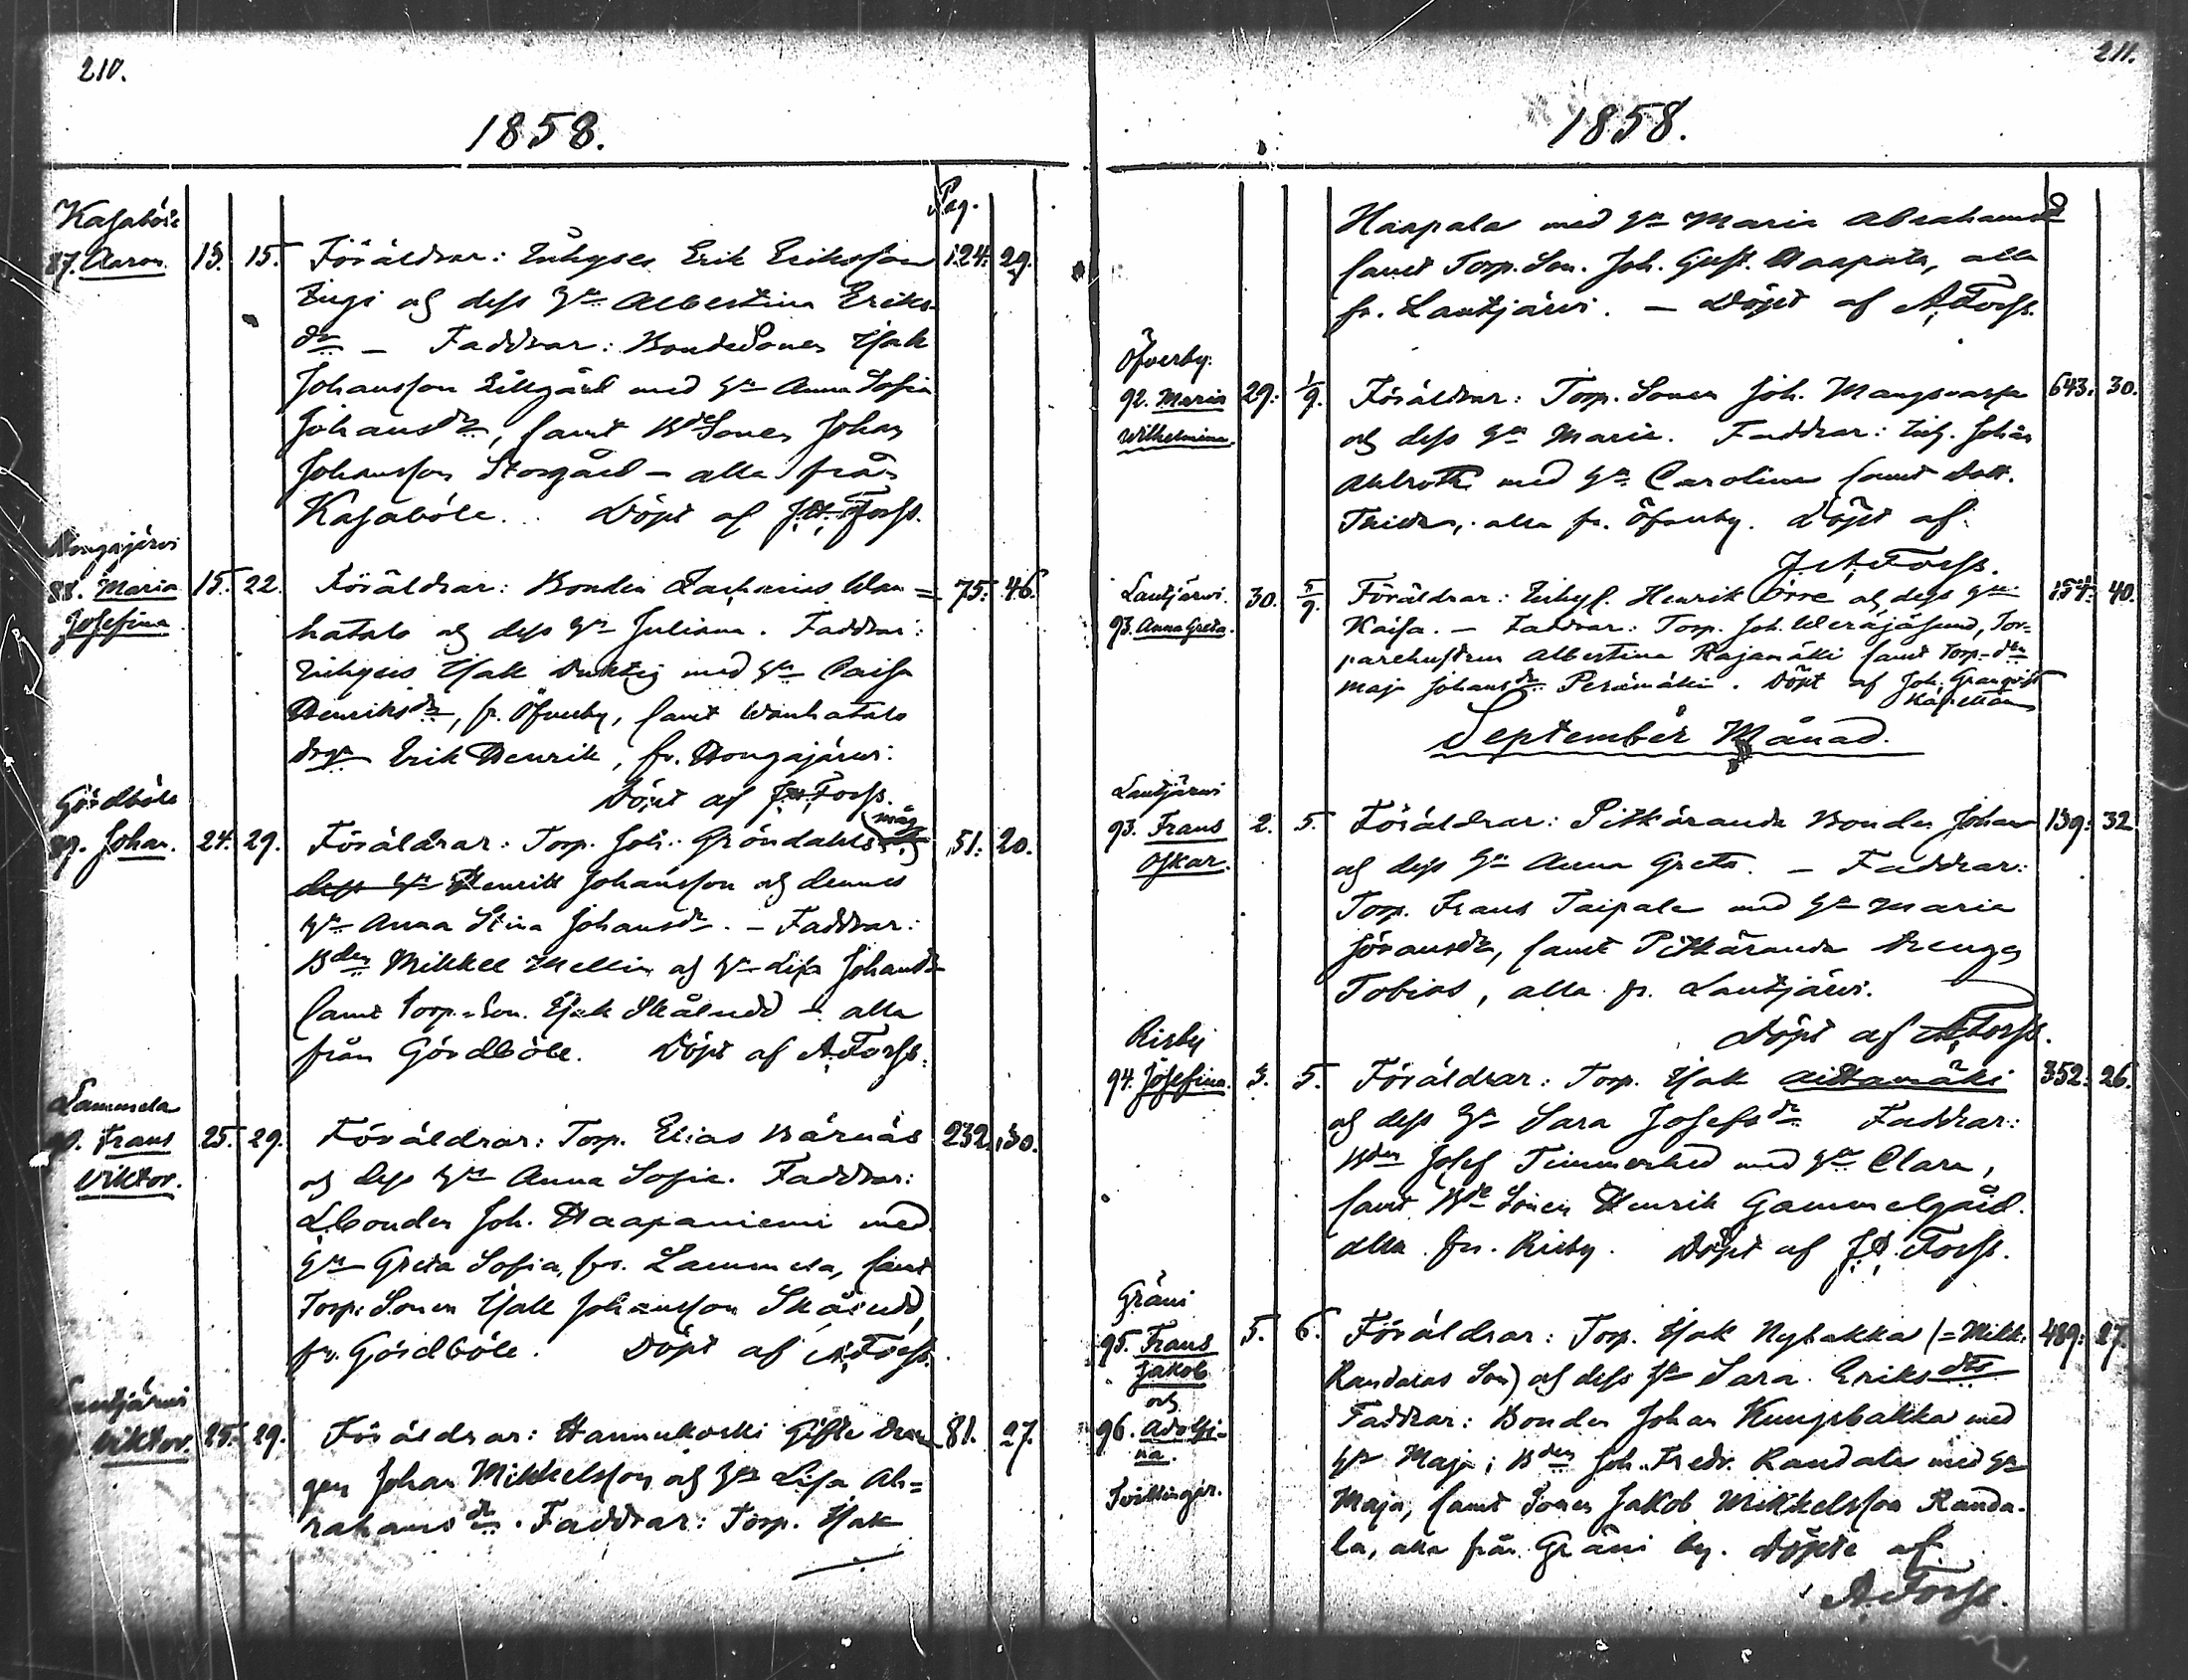 210.
1858.
Pag.
Kasaböle
87. Aaron. 13. 15. Föräldrar: Inhyses Erik Eriksson 124. 29.
och dess Hu Albertina Eriks-
dr — Faddrar: BondeSonen Isak
Johansson Lillgård med Hu Anna Sofia
Johansdr, samt BdeSonen Johan
Johansson Storgård — alla från
Kasaböle. Döpt af J.A. Forss.
Hongajärvi
88. Maria 15. 22. Föräldrar: Bonden Zacharias Wan= 75. 46.
Josefina
hatalo och dess Hu Juliana. Faddrar:
Inhyses Isak Duktig med Hu Caisa
Henriksdr, fr. Öfverby, samt Wanhatalo
drgn Erik Henrik, fr. Hongajärvi.
Döpt af J.A. Forss.
Gördböle
89. Johan. 24. 29. Föräldrar: Torp. Joh. Gröndahls måg 51. 20.
dess Hu Henrik Johansson och dennes
Hu Anna Stina Johansdr. — Faddrar:
Bden Mikkel Mellin och Hu Lisa Johansdr
samt Torp. Son. Isak Skåludd — alla
från Gördböle. Döpt af A. Forss.
Lammela
90. Frans 25. 29. Föräldrar: Torp. Elias Bärnäs 232. 30.
Viktor.
och dess Hu Anna Sofia. Faddrar:
Lbonden Joh. Haapaniemi med
Hu Greta Sofia, fr. Lammela, samt
Torp. Sonen Isak Johansson Skåludd,
fr. Gördböle. Döpt af A. Forss.
Lautjärvi
Viktor. 25. 29. Föräldrar: Hannukoski Gifte Drän 81. 27.
gen Johan Mikkelsson och Hu Lisa Ab=
rahamsdr. Faddrar: Torp. Isak
211.
1858.
Haapala med Hu Maria Abrahamsdr
samt Torp. Son. Joh. Gust. Haapala, alla
fr. Lautjärvi. — Döpt af A. Forss.
Öfverby.
92. Maria 29. 1/9. Föräldrar: Torp. Sonen Joh. 643. 30.
Wilhelmina.
och dess Hu Maria. Faddrar: Inh. Johan
Ahlroth med Hu Carolina samt Dott.
alla fr. Öfverby. Döpt af
J.A. Forss.
Lautjärvi.
93. Anna Greta. 30. 5/9. Föräldrar: Inhys. Henrik Orre och dess Hu 154. 40.
Kaisa. — Faddrar: Torp. Joh. Weräjäsund, Tor-
parehustrun Albertina Rajamäki samt Torp. dn
Maja Johansdr Perämäki. Döpt af Joh. Granqvist
Kapellan
September Månad.
Lautjärvi
93. Frans 2. 5. Föräldrar: Pitkäranda Bonden Johan 139. 32.
Oskar.
och dess Hu Anna Greta. — Faddrar:
Torp. Frans Taipale med Hu Maria
Göransdr, samt Pitkäranda drengen
Tobias, alla fr. Lautjärvi.
Döpt af A. Forss.
Risby
94. Josefina. 3. 5. Föräldrar: Torp. Isak Aittamäki 352. 26.
och dess Hu Sara Josefsdr Faddrar:
Bden Josef Timmerhed med Hu Clara,
samt Bde Sonen Henrik Gammelgård.
alla fr. Risby. Döpt af J.A. Forss.
Gräni
95. Frans 5. 6. Föräldrar: Torp. Isak Nybakka (=Mikk. 489. 27.
Jakob
och
96. Adolfi-
na.
Tvillingar.
Randalas Son) och dess Hu Sara Eriksdtr
Faddrar: Bonden Johan Kungsbakka med
Hu Maja; Bden Joh. Fredr. Randala med Hu
Maja, samt Sonen Jakob Mikkelsson Randa-
la, alla från Gräni by. Döpte af
A. Forss.